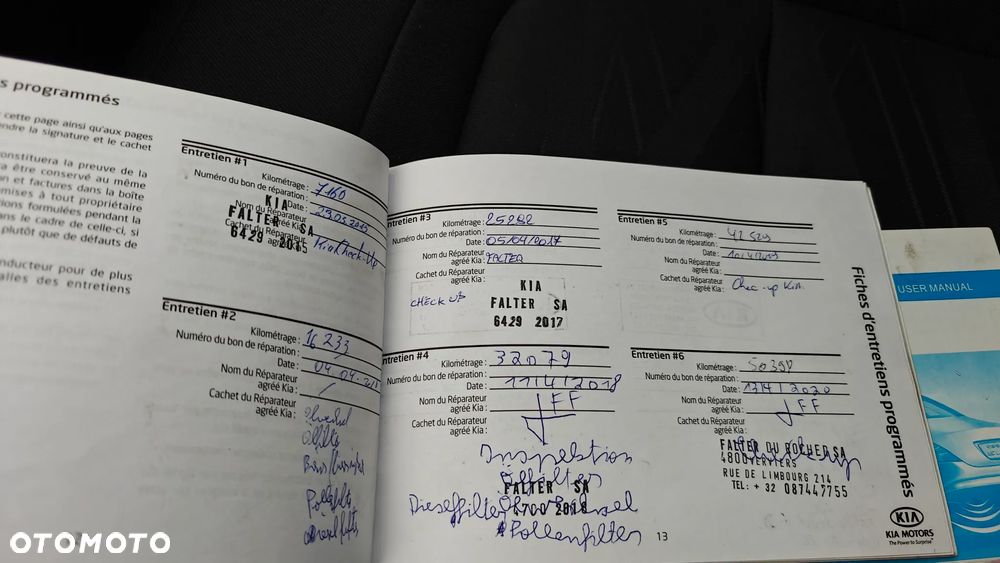 s programmés
cette page ainsi qu'aux pages
endre la signature et le cachet
onstituera la preuve de la
a être conservé au même
on et factures dans la boîte
mises à tout propriétaire
tions formulées pendant la
ns le cadre de celle-ci, si
plutôt que de défauts de
nducteur pour de plus
alles des entretiens
Entretien #1
Kilométrage : 7160
Numéro du bon de réparation :
Date :
Nom du Réparateur
agréé Kia :
Cachet du Réparateur
agréé Kia :
KIA
FALTER SA
6429 2015
Kia Check-Up
Entretien #2
Kilométrage : 16 233
Numéro du bon de réparation :
Date :
Nom du Réparateur
agréé Kia :
Cachet du Réparateur
agréé Kia :
Entretien #3
Kilométrage : 25282
Numéro du bon de réparation :
Date : 05/04/2017
Nom du Réparateur
agréé Kia : FALTER
Cachet du Réparateur
agréé Kia :
CHECK UP
KIA
FALTER SA
6429 2017
Entretien #4
Kilométrage : 32079
Numéro du bon de réparation :
Date : 11/4/2018
Nom du Réparateur
agréé Kia : FF
Cachet du Réparateur
agréé Kia :
Inspektion
Ölfilter
FALTER SA
Dieselfilter
Pollenfilter
Entretien #5
Kilométrage :
Numéro du bon de réparation :
Date :
Nom du Réparateur
agréé Kia :
Cachet du Réparateur
agréé Kia : Chec-up Kia
KIA
Entretien #6
Kilométrage :
Numéro du bon de réparation :
Date : 17/4/2020
Nom du Réparateur
agréé Kia : FF
Cachet du Réparateur
agréé Kia :
FALTER DU ROCHER SA
4800 VERVIERS
RUE DE LIMBOURG 214
TEL: + 32 087447755
13
Fiches d'entretiens programmés
KIA
KIA MOTORS
The Power to Surprise
USER MANUAL
OTOMOTO